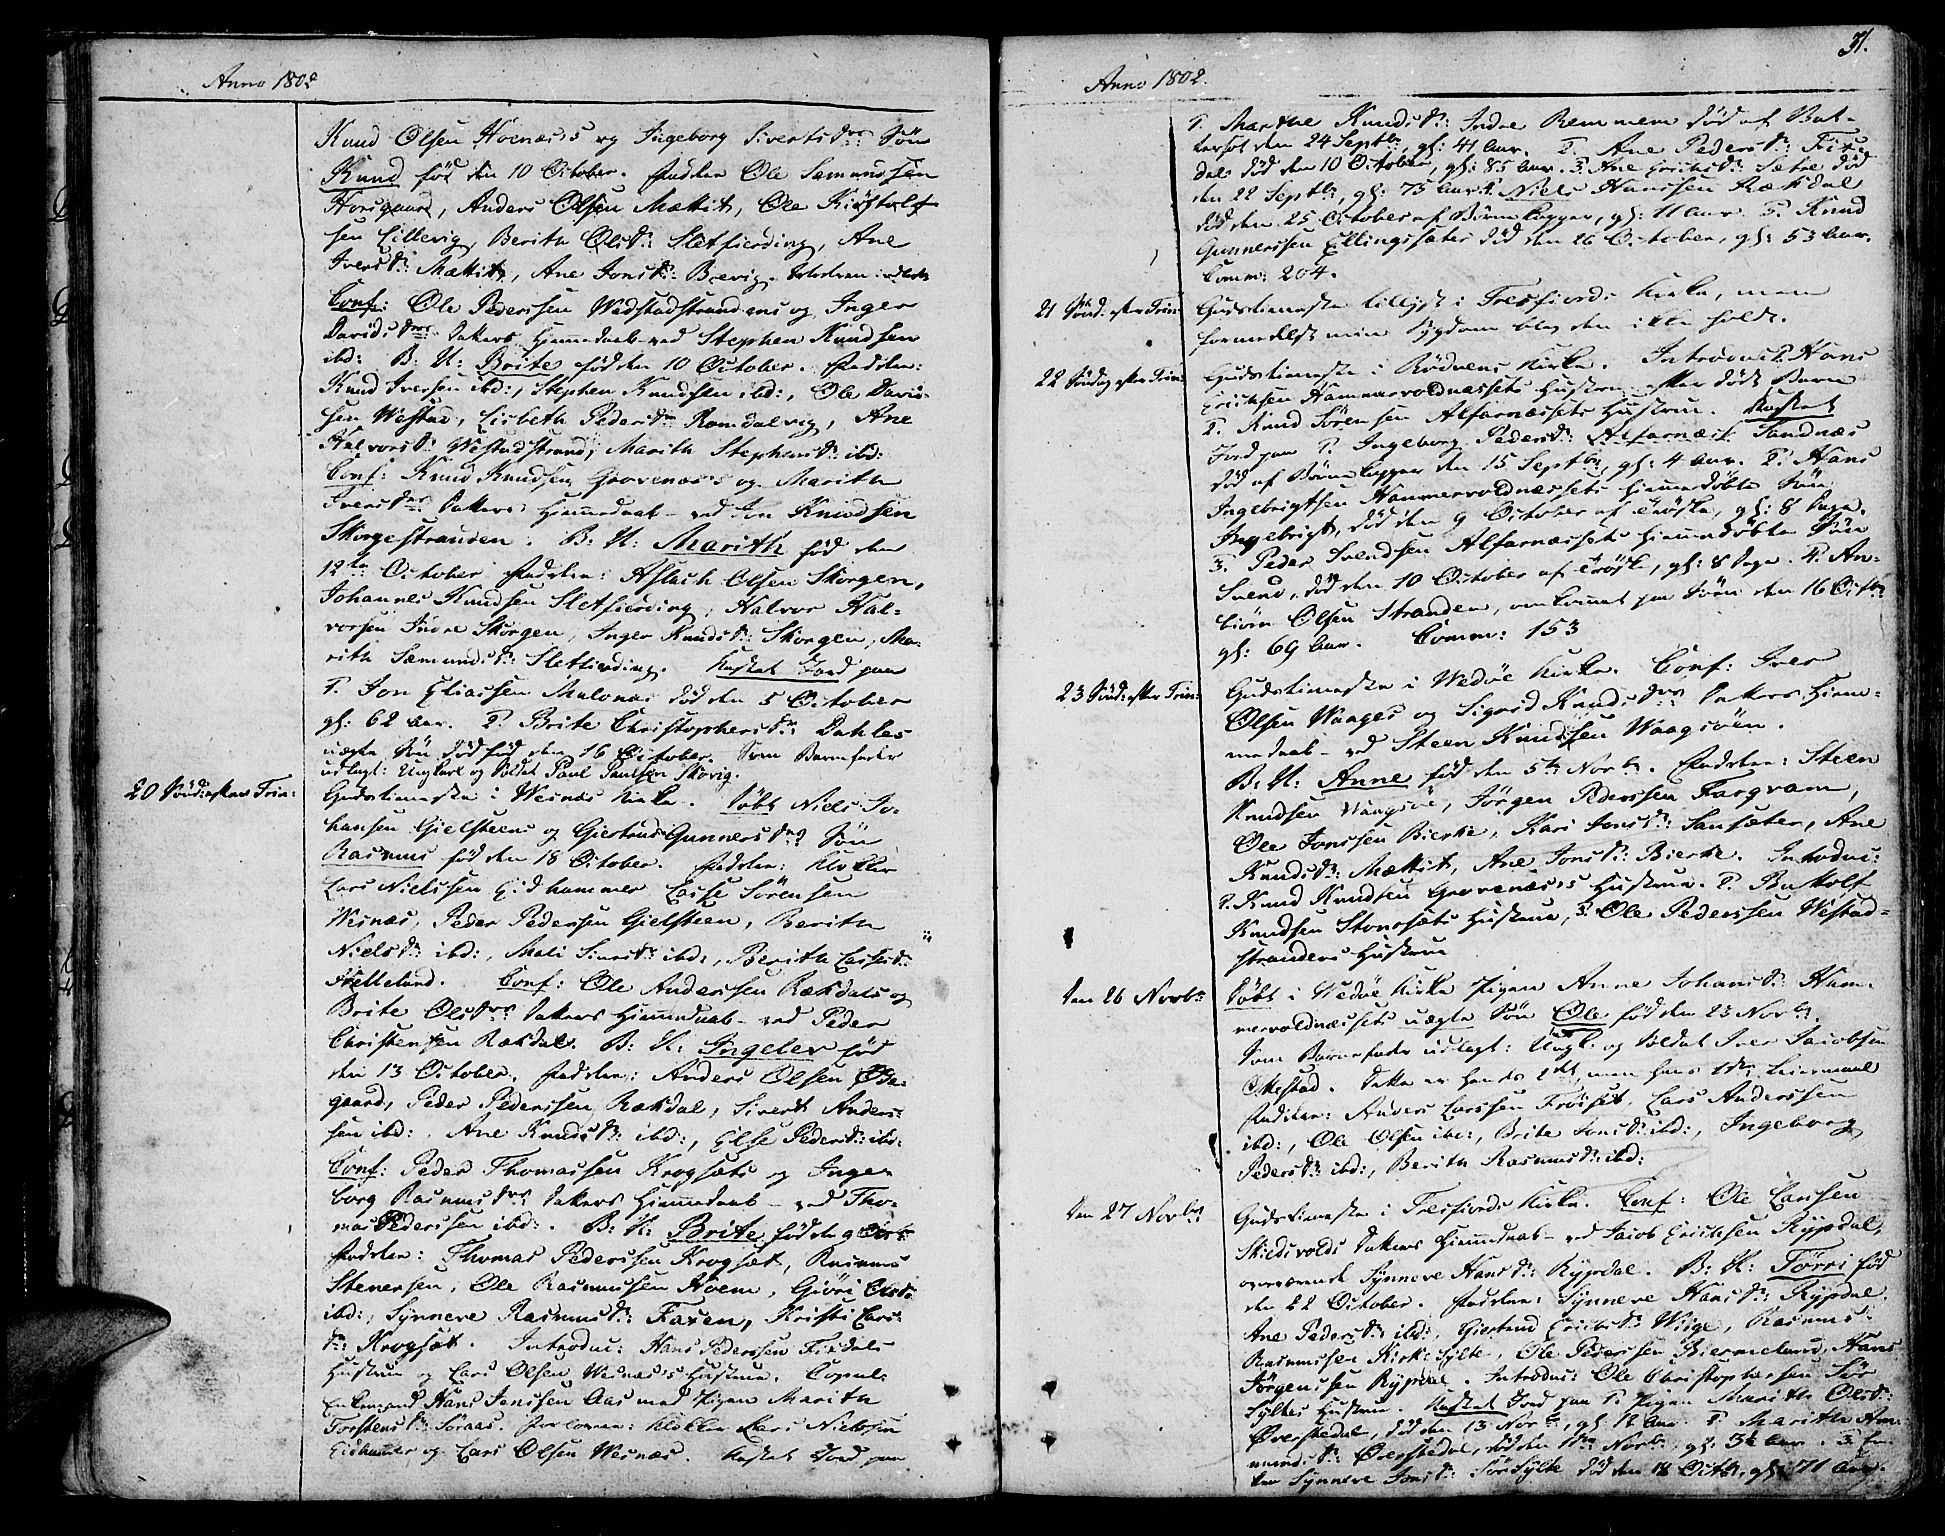 Anno 1802
Knud Olsen Hoenæss og Ingeborg Sivertsdrs Søn
Knud fød den 10 October. Fadder Ole Samundsen
Horsgaard, Anders Olsen Mækit, Ole Kiøstolf-
sen Lillevig, Berith Olsdr: Sletfierding, Ane
Iversdr: Mækit, Ane Jonsdr: Brevig.
Conf: Ole Pederssen Wedstadstrandens og Inger
Davidsdrs Datters Hiemmedaab ved Stephen Knudsen
ibd: B: N: Brite fød den 10 October. Faddere:
Knud Iversen ibd:, Stephen Knudsen ibd:, Ole David-
sen Westad, Lisbeth Pedersdr Romdalvig, Ane
Halvorsdr: Westadstrand, Marith Stephensdr: ibd:
Conf: Knud Knudsen Grovenæss og Marith
Iversdrs Datters Hiemmedaab ved Jon Knudsen
Skorgestranden. B: N: Marith fød den
12te October Faddere: Aslach Olsen Skorgen,
Johannes Knudsen Sletfierding, Halvor Hal-
vorsen Indre Skorgen, Inger Knudsdr: Skorgen, Ma-
rith Sæmundsdr: Sletfierding. Kastet Jord paa
1. Jon Eliassen Malonæs død den 5 October
gl: 62 Aar. 2. Brite Christophersdr: Dahles
uægte Søn død fød den 16 October. Som Barnefader
udlagt: Ungkarl og Soldat Paul Paulsen Skovig.
20 Sønd: efter Trin:
Gudstieneste i Wesnæs Kirke. Døbt Niels Jo-
hansen Gielsteens og Giertrud Gunnersdrs Søn
Rasmus fød den 18 October. Faddere: Klokker
Lars Nielssen Eidhammer Lasse Sørensen
Wesnæs, Peder Pedersen Gielsteen, Berith
Nielsdr: ibd:, Mali Siversdr: ibd:, Berith Lassesdr:
Helleland. Conf: Ole Anderssen Rækdals og
Brite Olsdrs Datters Hiemmedaab ved Peder
Christensen Rækdal. B: N: Ingelev fød
den 13 October. Faddere: Anders Olsen Øde-
gaard, Peder Pederssen Rækdal, Sivert Anders-
sen ibd:, Ane Knudsdr: ibd:, Else Pedersdr: ibd:
Conf: Peder Thomassen Krogsæts og Inge-
borg Rasmusdrs Datters Hiemmedaab ved Tho-
mas Pederssen ibd:. B: N: Brite fød den 9 Octr
Faddere: Thomas Pederssen Krogsæt, Rasmus
Stenersen, Ole Rasmussen Hoem, Giøri Olsdr
ibd:, Synneve Rasmusdr: Faxen, Kristi Lars-
dr: Krogsæt. Introduc: Hans Pederssen Fixdals
Hustrue og Lars Olsen Wednæss Hustrue. Copul:
Enkemand Hans Jenssen Aas med Pigen Marith
Torstensdr: Søraas. Forlovere: Klokker Lars Nielssen
Eidhammer og Lars Olsen Wesnæs. Kastet Jord paa
31.
Anno 1802.
1. Marthe Knudsdr: Indre Remmem død af Vat-
tersot den 24 Septbr, gl: 41 Aar. 2. Ane Pedersdr: Fix-
dal død den 10 October, gl: 85 Aar. 3. Ane Erichsdr: Sætre død
den 22 Septbr, gl: 75 Aar. 4. Niels Hanssen Rækdal
død den 25 October af Børnekopper, gl: 11 Aar. 5. Knud
Gunnerssen Ellingsæter død den 26 October, gl: 53 Aar.
Comm: 204.
21 Sønd: efter Trin:
Gudstieneste tillyst i Tresfiords Kirke, men
formedelst min Sygdom blev den ikke holdt.
22 Søndag efter Trin:
Gudstieneste i Rødvens Kirke. Introduc: 1. Hans
Erichsen Hammervoldnæssets Hustrue efter dødt Barn
2. Knud Sørensen Alfarnæssets Hustrue. Kastet
Jord paa 1. Ingeborg Pedersdr: Alfarnæss Sandnæs
død af Børnekopper den 15 Septbr, gl: 4 Aar. 2. Hans
Ingebrigtsen Hammervoldnæssets hiemmedøbte Søn
Ingebrigt, død den 9 October af Trøske, gl: 8 Dage.
3. Peder Svendsen Alfarnæssets hiemmedøbte Søn
Svend, død den 10 October af Trøsk, gl: 8 Dage. 4. An-
biørn Olsen Stranden, omkommet paa Søen den 16 Octbr
gl: 69 Aar. Comm: 153
23 Sønd: efter Trin:
Gudstieneste i Wedøe Kirke. Conf: Iver
Olsen Waages og Sigrid Knudsdrs Datters Hiem-
medaab ved Steen Knudsen Waagsøen.
B: N: Anne fød den 5te Novbr. Faddere: Steen
Knudsen Waagsøe, Jørgen Pederssen Fargvam,
Ole Jonssen Bierke, Kari Jonsdr: Sansæter, Ane
Knudsdr: Mækit, Ane Jonsdr: Bierke. Introduc:
1. Knud Knudsen Grovenæss Hustrue. 2. Buttolf
Knudsen Stonsæts Hustrue, 3. Ole Pederssen Westad-
strandens Hustrue
Den 26 Novbr
Døbt i Wedøe Kirke Pigen Anne Johansdr: Ham-
mervoldnæssets uægte Søn Ole fød den 23 Novbr.
Som Barnefader udlagt: Ungk: og Soldat Iver Jacobsen
Okestad. Dette er hendes 2det, men hans 1ste Leiermaal
Faddere: Anders Larssen Frøiset, Lars Anderssen
ibd:, Ole Olsen ibd:, Brite Jonsdr: ibd:, Ingeborg
Pedersdr ibd:, Berith Rasmusdr: ibd:
Den 27 Novbr
Gudstieneste i Tresfiords Kirke. Conf: Ole Larsen
Skiedsvolds Datters Hiemmedaab ved Jacob Erichsen Rypdal,
overværende Synneve Hansdr: Rypdal. B: N: Tørri fød
den 22 October. Faddere: Synneve Hansdr: Rypdal.
Ane Pedersdr: ibd:, Giertrud Erichsdr: Wiige, Rasmus
Rasmussen Kirk-Sylte, Ole Pederssen Biermeland, Hans
Jørgenssen Rypdal. Introduc: Ole Christophersen Sør
Syltes Hustrue. Kastet Jord paa 1. Pigen Marith Olsdr:
Øverstedal, død den 13 Novbr, gl: 12 Aar. 2. Marith Am-
mundsdr: Øverstedal, død den 11te Novbr, gl: 34 Aar. 3. En-
ken Synneve Jonsdr: Sør Sylte død den 18 Octbr, gl: 71 Aar.